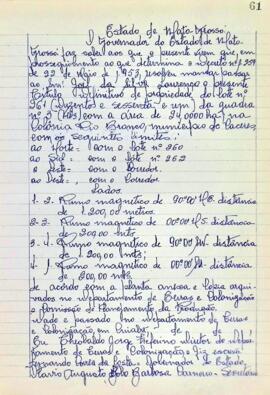 61
Estado de Mato Grosso
O Governador do Estado de Mato
Grosso faz saber aos que o presente virem que, em
prosseguimento ao que determina o Decreto nº 1.259
de 22 de Maio de 1953, resolveu mandar passar
ao Snr. José da Lourenço o presente
Titulo Definitivo de propriedade do lote nº
261 (duzentos e sessenta e um) da quadra
nº 2 com a área de 24.0000 has) na
Colonia Rio Branco, municipio de Caceres,
com os seguintes limites:
ao Norte= com o lote nº 260
ao Sul = com o lote nº 262
a Leste= com o Corredor.
ao Oeste=, com o Corredor
Lados
1-2. Rumo magnetico de distância
de 1.200,00 metros
2-3. Rumo magnetico de 00º00' S. distância
de 200,00 mts
3-4. Rumo magnetico de 90º00' W. distância
de 1.200,00 mts;
4-1. Rumo magnetico de 00º00' N. distância
200,00 mts
de acordo com a planta anexa e cópia arqui-
vados no Departamento de Terras e Colonização
e Comissão de Planejamento da Produção.
Dado e passado no Departamento de Terras
e Colonização, em Cuiabá,
Eu Jorge Diretor do Depar-
tamento de Terras e Colonização, fiz escrever
Fernando Corrêa da Costa - Governador do Estado,
Augusto Barbosa Carneiro -